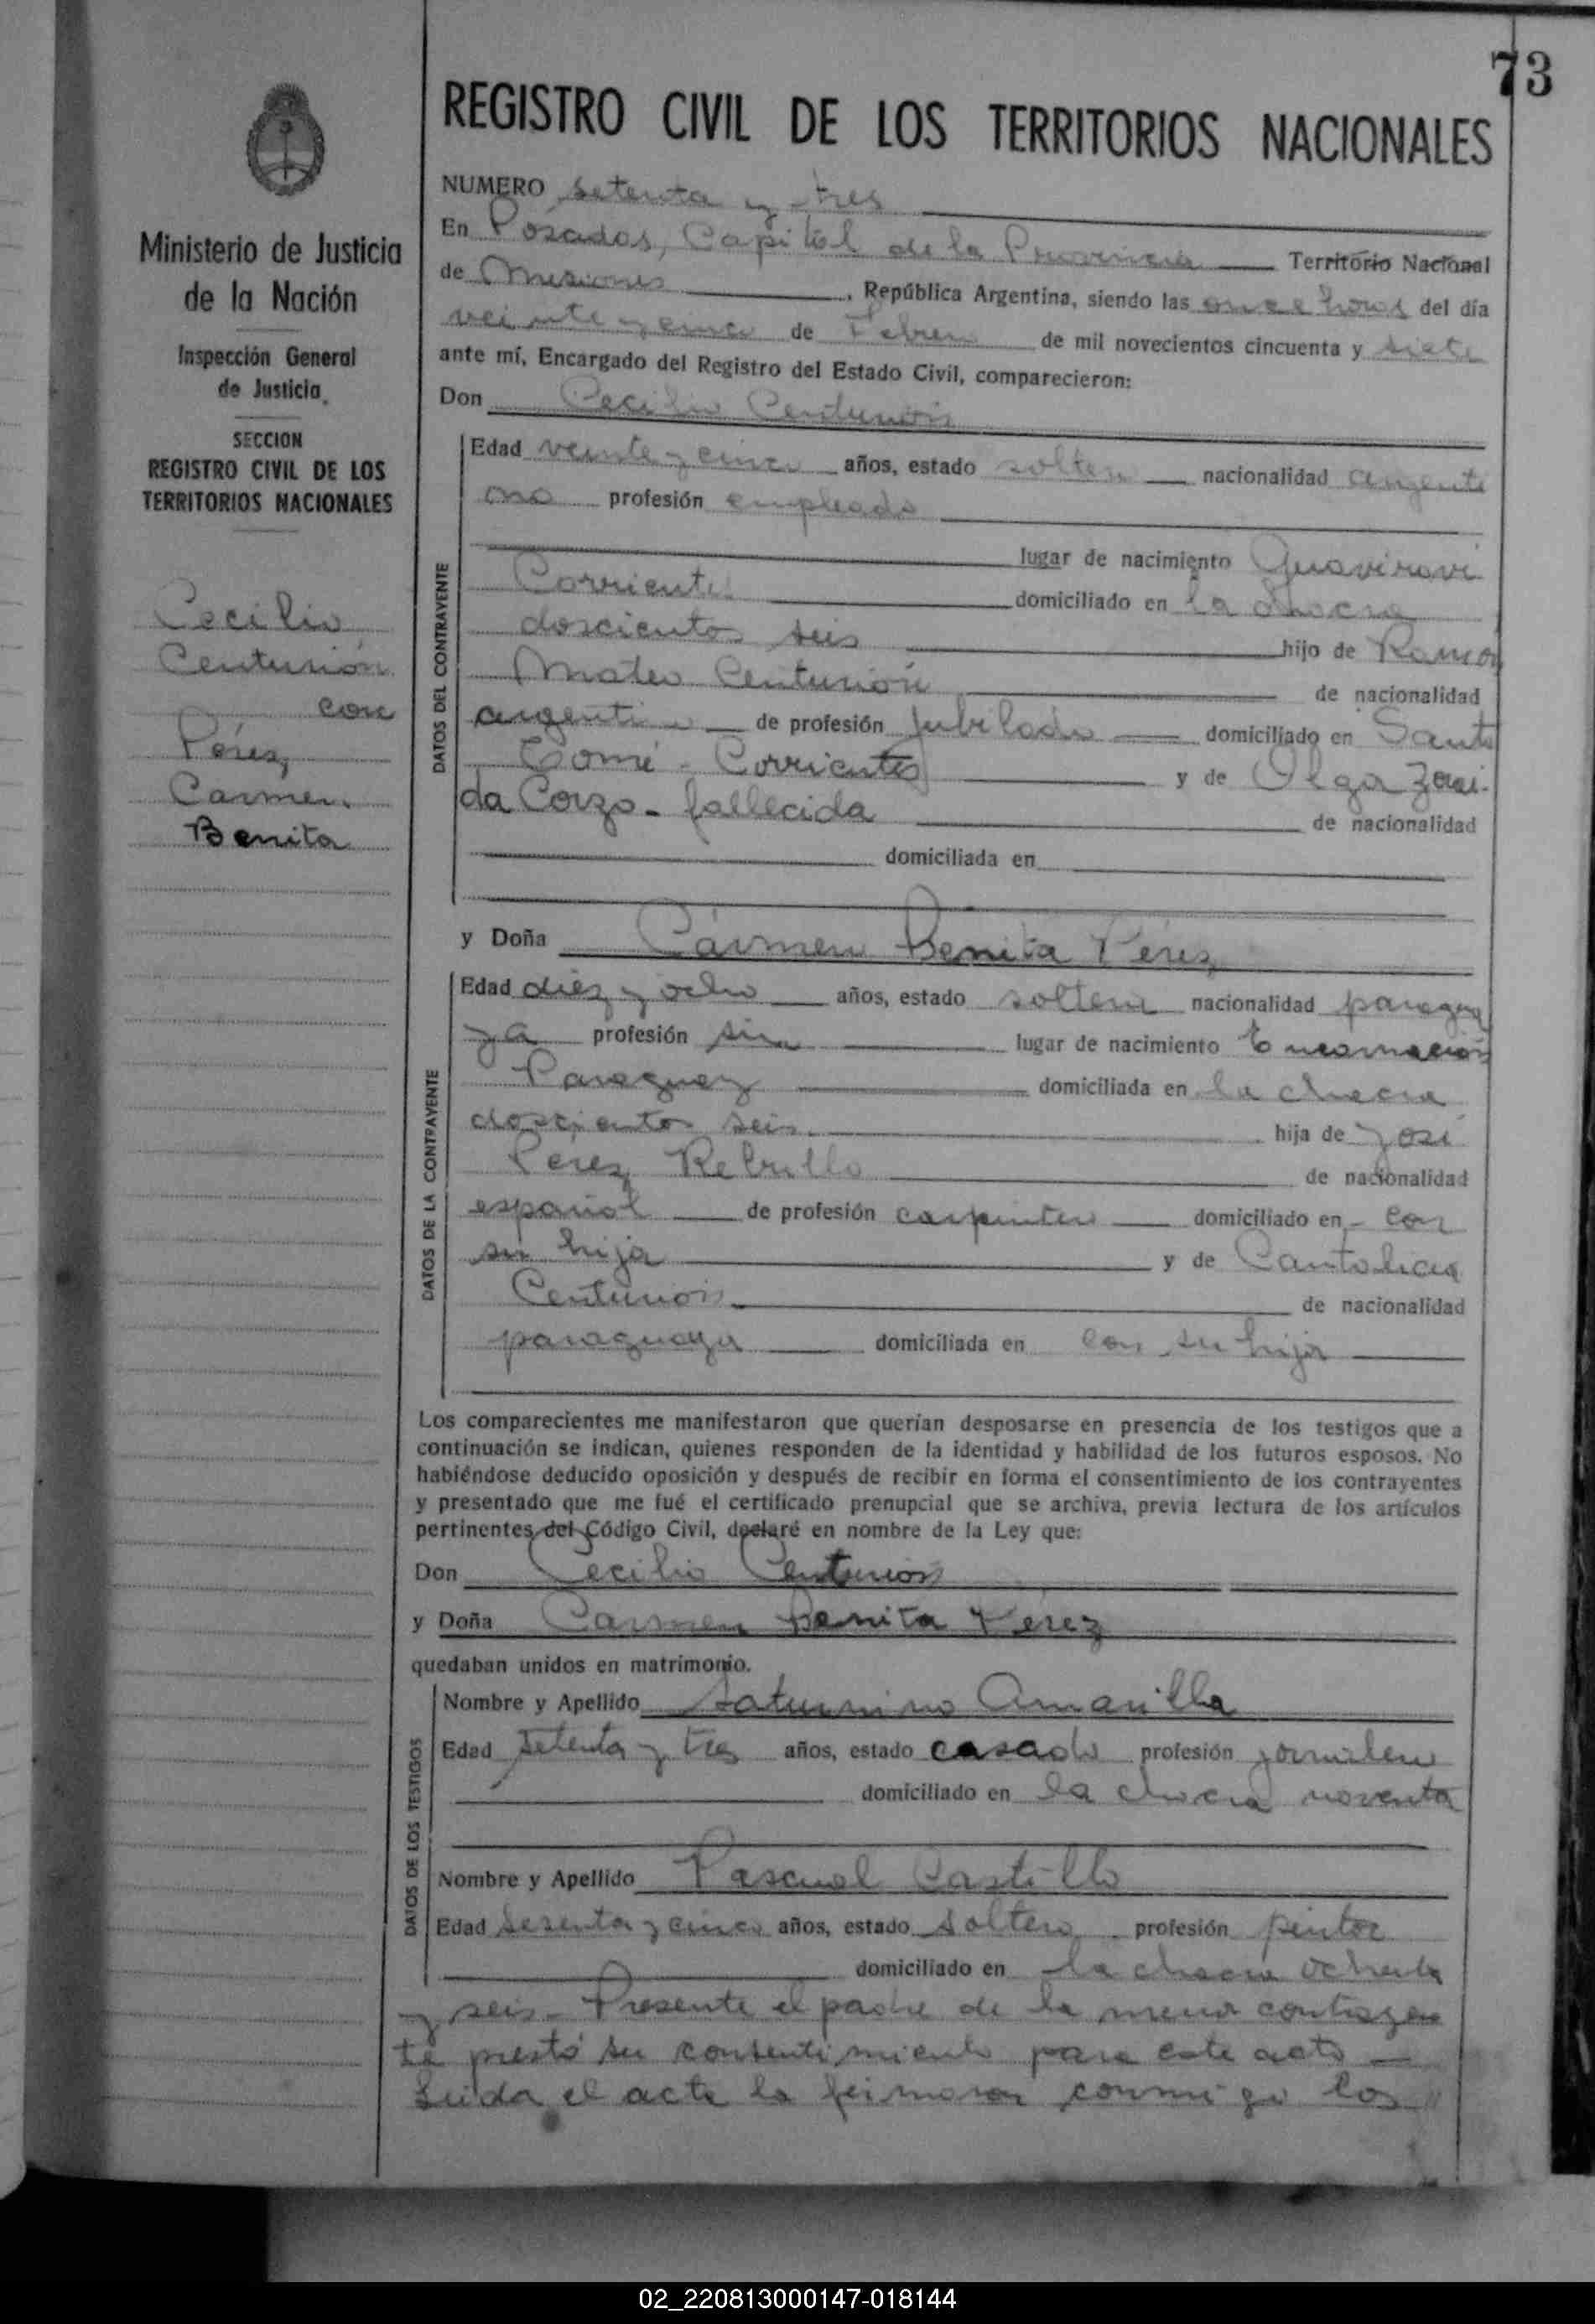 73
REGISTRO CIVIL DE LOS TERRITORIOS NACIONALES
Ministerio de Justicia
de la Nación
Inspección General
de Justicia
SECCION
REGISTRO CIVIL DE LOS
TERRITORIOS NACIONALES
Cecilio
Centurión
con
Pérez,
Carmen
Benita
NUMERO setenta y tres
En Posadas, Capital de la Provincia Territorio Nacional
de Misiones, República Argentina, siendo las once horas del día
veinte y cinco de Febrero de mil novecientos cincuenta y siete
ante mí, Encargado del Registro del Estado Civil, comparecieron:
Don Cecilio Centurión
DATOS DEL CONTRAYENTE
Edad veinte y cinco años, estado soltero nacionalidad argenti
no profesión empleado
lugar de nacimiento Guaviraví
Corrientes domiciliado en la chacra
doscientos seis hijo de Ramón
Mateo Centurión de nacionalidad
argentino de profesión jubilado domiciliado en Santo
Tomé - Corrientes y de Olga Zorai-
da Corzo - fallecida de nacionalidad
domiciliada en
y Doña Cármen Benita Pérez
DATOS DE LA CONTRAYENTE
Edad diez y ocho años, estado soltera nacionalidad paragua
ya profesión sin lugar de nacimiento Encarnación
Paraguay domiciliada en la chacra
doscientos seis. hija de José
Perez Rebullo de nacionalidad
español de profesión carpintero domiciliado en con
su hija y de Cantalicia
Centurión de nacionalidad
paraguaya domiciliada en con su hija
Los comparecientes me manifestaron que querían desposarse en presencia de los testigos que a
continuación se indican, quienes responden de la identidad y habilidad de los futuros esposos. No
habiéndose deducido oposición y después de recibir en forma el consentimiento de los contrayentes
y presentado que me fué el certificado prenupcial que se archiva, previa lectura de los artículos
pertinentes del Código Civil, declaré en nombre de la Ley que:
Don Cecilio Centurión
y Doña Carmen Benita Pérez
quedaban unidos en matrimonio.
DATOS DE LOS TESTIGOS
Nombre y Apellido Saturnino Amarilla
Edad setenta y tres años, estado casado profesión jornalero
domiciliado en la chacra noventa
Nombre y Apellido Pascual Castillo
Edad sesenta y cinco años, estado soltero profesión pintor
domiciliado en la chacra ochenta
y seis - Presente el padre de la menor contrayen
te prestó su consentimiento para este acto -
Leida el acta la firmaron conmigo los "
02_220813000147-018144